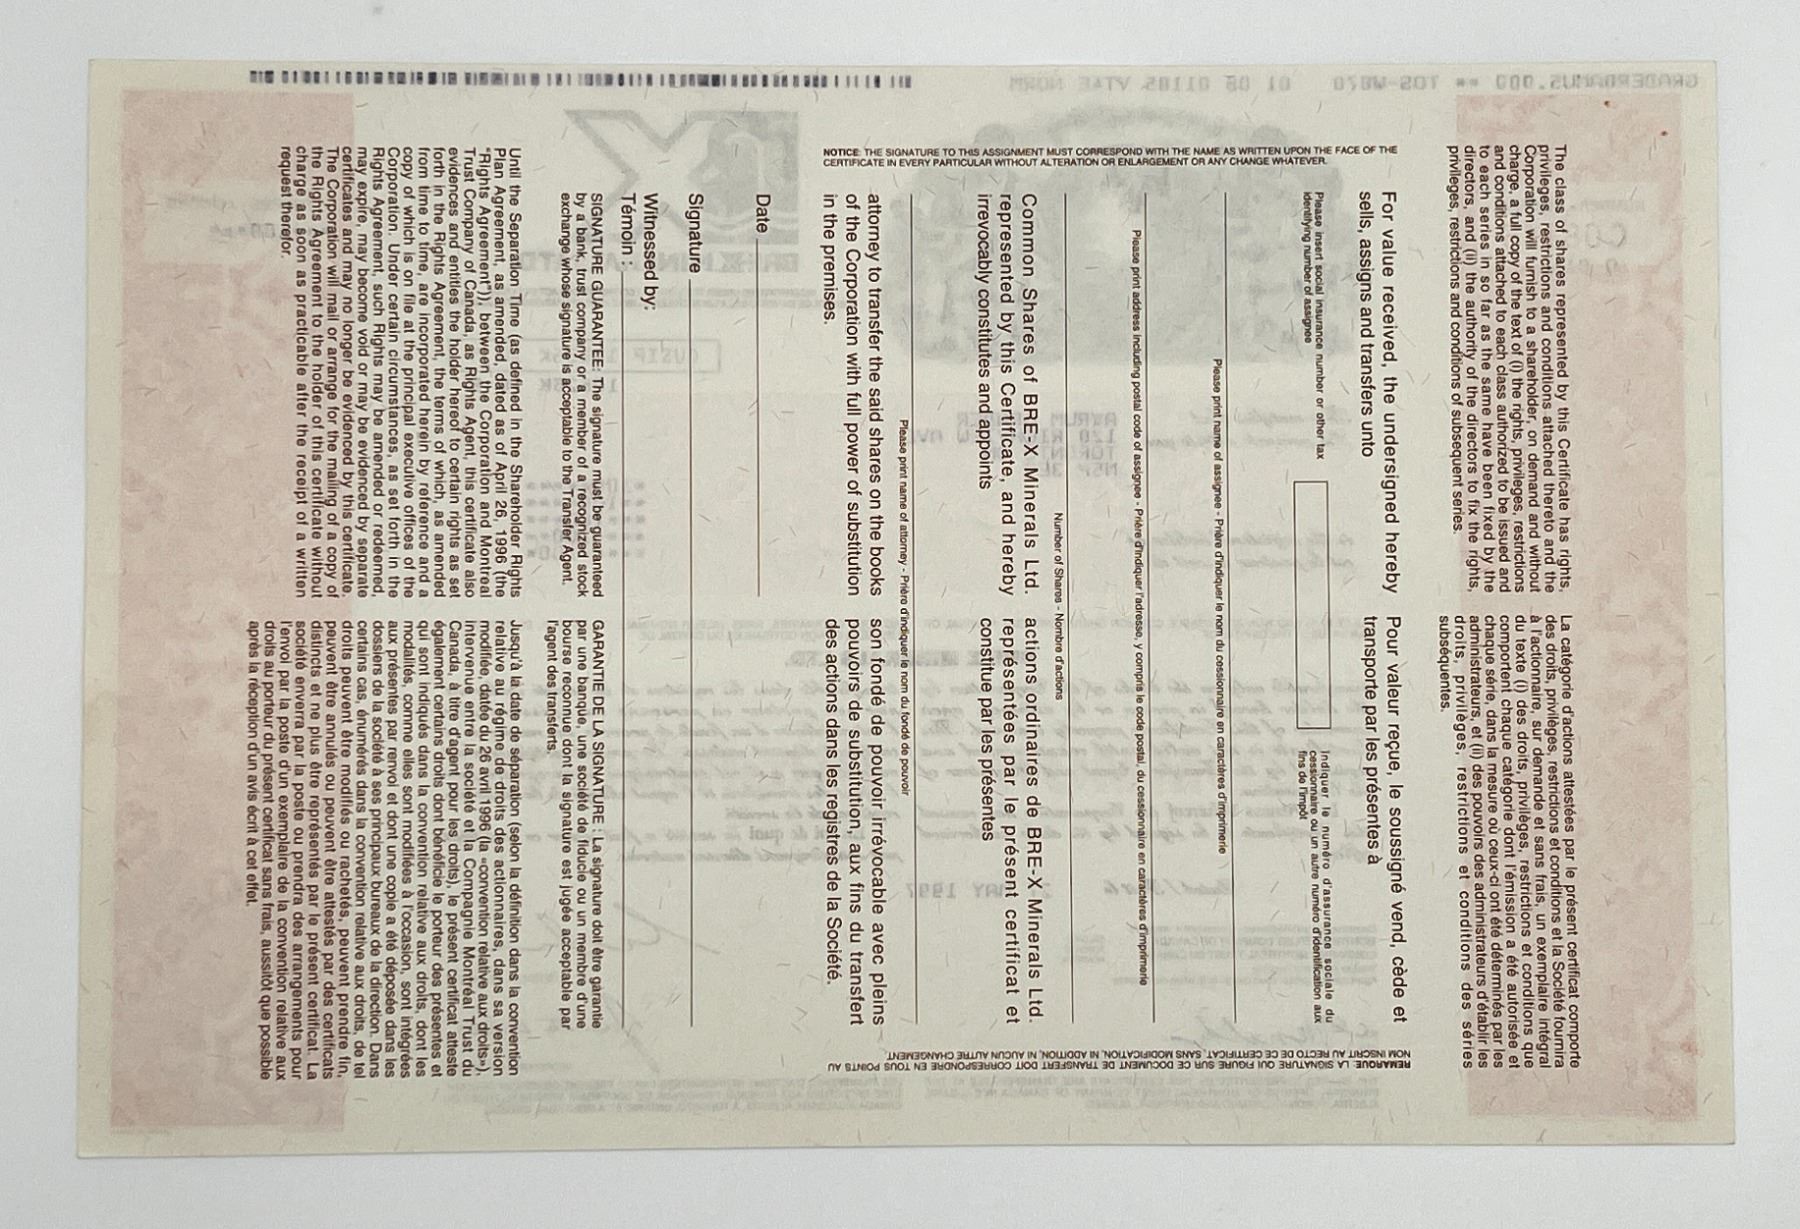 The class of shares represented by this Certificate has rights,
privileges, restrictions and conditions attached thereto and the
Corporation will furnish to a shareholder, on demand and without
charge, a full copy of the text of (i) the rights, privileges, restrictions
and conditions attached to each class authorized to be issued and
to each series in so far as the same have been fixed by the
directors, and (ii) the authority of the directors to fix the rights,
privileges, restrictions and conditions of subsequent series.
La catégorie d'actions attestées par le présent certificat comporte
des droits, privilèges, restrictions et conditions et la Société fournira
à l'actionnaire, sur demande et sans frais, un exemplaire intégral
du texte (i) des droits, privilèges, restrictions et conditions que
comportent chaque catégorie dont l'émission a été autorisée et
chaque série, dans la mesure où ceux-ci ont été déterminés par les
administrateurs, et (ii) des pouvoirs des administrateurs d'établir les
droits, privilèges, restrictions et conditions des séries
subséquentes.
For value received, the undersigned hereby
sells, assigns and transfers unto
Pour valeur reçue, le soussigné vend, cède et
transporte par les présentes à
Please insert social insurance number or other tax
identifying number of assignee
Indiquer le numéro d'assurance sociale du
cessionnaire ou un autre numéro d'identification aux
fins de l'impôt
Please print name of assignee - Prière d'indiquer le nom du cessionnaire en caractères d'imprimerie
Please print address including postal code of assignee - Prière d'indiquer l'adresse, y compris le code postal, du cessionnaire en caractères d'imprimerie
Number of Shares - Nombre d'actions
Common Shares of BRE-X Minerals Ltd.
represented by this Certificate, and hereby
irrevocably constitutes and appoints
actions ordinaires de BRE-X Minerals Ltd.
représentées par le présent certificat et
constitue par les présentes
Please print name of attorney - Prière d'indiquer le nom du fondé de pouvoir
attorney to transfer the said shares on the books
of the Corporation with full power of substitution
in the premises.
son fondé de pouvoir irrévocable avec pleins
pouvoirs de substitution, aux fins du transfert
des actions dans les registres de la Société.
Date
Signature
Witnessed by:
Témoin :
SIGNATURE GUARANTEE: The signature must be guaranteed
by a bank, trust company or a member of a recognized stock
exchange whose signature is acceptable to the Transfer Agent.
GARANTIE DE LA SIGNATURE : La signature doit être garantie
par une banque, une société de fiducie ou un membre d'une
bourse reconnue dont la signature est jugée acceptable par
l'agent des transferts.
Until the Separation Time (as defined in the Shareholder Rights
Plan Agreement, as amended, dated as of April 26, 1996 (the
"Rights Agreement")), between the Corporation and Montreal
Trust Company of Canada, as Rights Agent, this certificate also
evidences and entitles the holder hereof to certain rights as set
forth in the Rights Agreement, the terms of which, as amended
from time to time, are incorporated herein by reference and a
copy of which is on file at the principal executive offices of the
Corporation. Under certain circumstances, as set forth in the
Rights Agreement, such Rights may be amended or redeemed,
may expire, may become void or may be evidenced by separate
certificates and may no longer be evidenced by this certificate.
The Corporation will mail or arrange for the mailing of a copy of
the Rights Agreement to the holder of this certificate without
charge as soon as practicable after the receipt of a written
request therefor.
Jusqu'à la date de séparation (selon la définition dans la convention
relative au régime de droits des actionnaires, dans sa version
modifiée, datée du 26 avril 1996 (la «convention relative aux droits»),
intervenue entre la société et la Compagnie Montréal Trust du
Canada, à titre d'agent pour les droits), le présent certificat atteste
également certains droits dont bénéficie le porteur des présentes et
qui sont indiqués dans la convention relative aux droits, dont les
modalités, comme elles sont modifiées à l'occasion, sont intégrées
aux présentes par renvoi et dont une copie a été déposée dans les
dossiers de la société à ses principaux bureaux de la direction. Dans
certains cas, énumérés dans la convention relative aux droits, de tel
droits peuvent être modifiés ou rachetés, peuvent prendre fin,
peuvent être annulés ou peuvent être attestés par des certificats
distincts et ne plus être représentés par le présent certificat. La
société enverra par la poste ou prendra des arrangements pour
l'envoi par la poste d'un exemplaire de la convention relative aux
droits au porteur du présent certificat sans frais, aussitôt que possible
après la réception d'un avis écrit à cet effet.
NOTICE: THE SIGNATURE TO THIS ASSIGNMENT MUST CORRESPOND WITH THE NAME AS WRITTEN UPON THE FACE OF THE
CERTIFICATE IN EVERY PARTICULAR WITHOUT ALTERATION OR ENLARGEMENT OR ANY CHANGE WHATEVER.
REMARQUE: LA SIGNATURE QUI FIGURE SUR CE DOCUMENT DE TRANSFERT DOIT CORRESPONDRE EN TOUS POINTS AU
NOM INSCRIT AU RECTO DE CE CERTIFICAT, SANS MODIFICATION, NI ADDITION, NI AUCUN AUTRE CHANGEMENT.